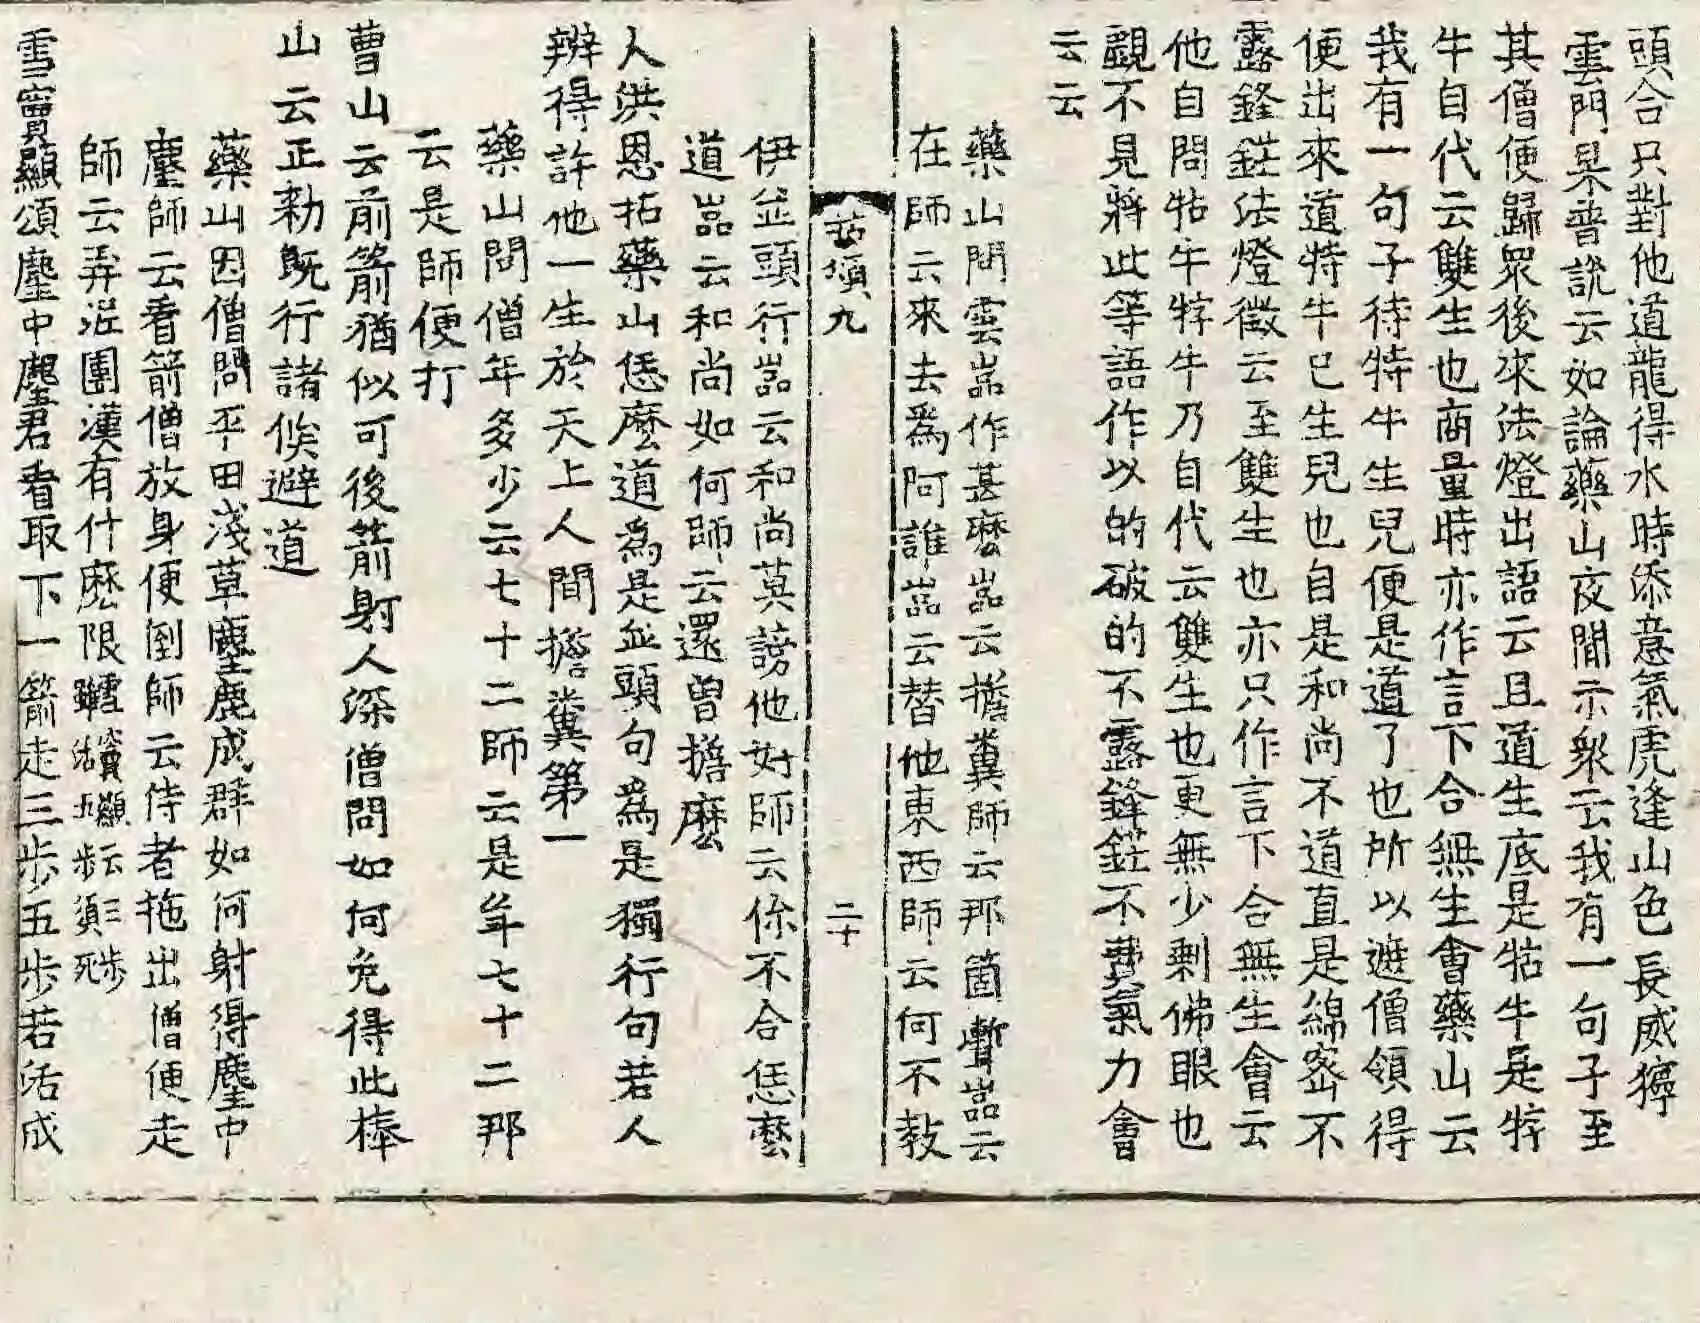 頭合只對他道龍得水時添意氣虎逢山色長威獰
雲門杲普說云如論藥山夜間示衆云我有一句子至
其僧便歸眾後來法燈出語云且道生底是牯牛是牸
牛自代云雙生也商量時亦作言下合無生會藥山云
我有一句子待特牛生兒便是道了也所以遮僧領得
便出來道特牛已生兒也自是和尚不道直是綿密不
露鋒鋩法燈徵云至雙生也亦只作言下合無生會云
他自問牯牛牸牛乃自代云雙生也更無少剩佛眼也
覰不見將此等語作以的破的不露鋒鋩不費氣力會
云云
藥山問雲嵓作甚麽嵓云擔糞師云那箇聻嵓云
在師云來去爲阿誰嵓云替他東西師云何不敎
拈頌九 二十
伊並頭行嵓云和尚莫謗他好師云你不合恁麽
道嵓云和尚如何師云還曾擔麽
人洪恩拈藥山恁麽道爲是並頭句爲是獨行句若人
辨得許他一生於天上人間擔糞第一
藥山問僧年多少云七十二師云是年七十二那
云是師便打
曹山云前箭猶似可後箭射人深僧問如何免得此棒
山云正勅旣行諸侯避道
藥山因僧問平田淺草麈鹿成群如何射得麈中
麈師云看箭僧放身便倒師云侍者拖出僧便走
師云弄泥團漢有什麽限雪竇顯云三步雖活五步須死
雪竇顯頌麈中麈君看取下一箭走三步五步若活成